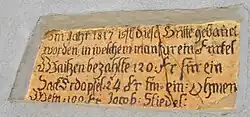 Im Jahr 1817 ist diese Brike gebauet
worden in welchem man fur ein Firtel
Waitzen bezahlte 120: Fr fur ein
Sack Erdöpfel: 24 Fr fur ein: Ohmen
Wein 100 Fr Jacob: Stiedel: